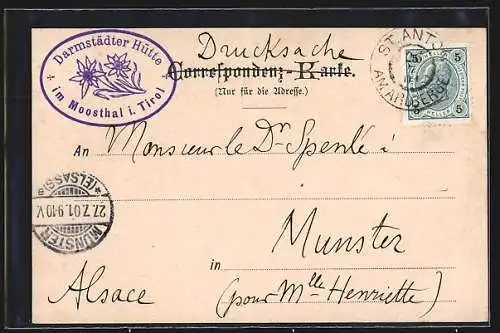 Drucksache
Darmstädter Hütte
im Moosthal i. Tirol
Correspondenz-Karte.
(Nur für die Adresse.)
ST. ANTON
AM ARLBERGE
5 5
5 5
An Monsieur le Dr Spenlé !
MÜNSTER
27.7.01.9-10 V.
*(ELSASS)a
Munster
in
Alsace (pour Mlle Henriette)